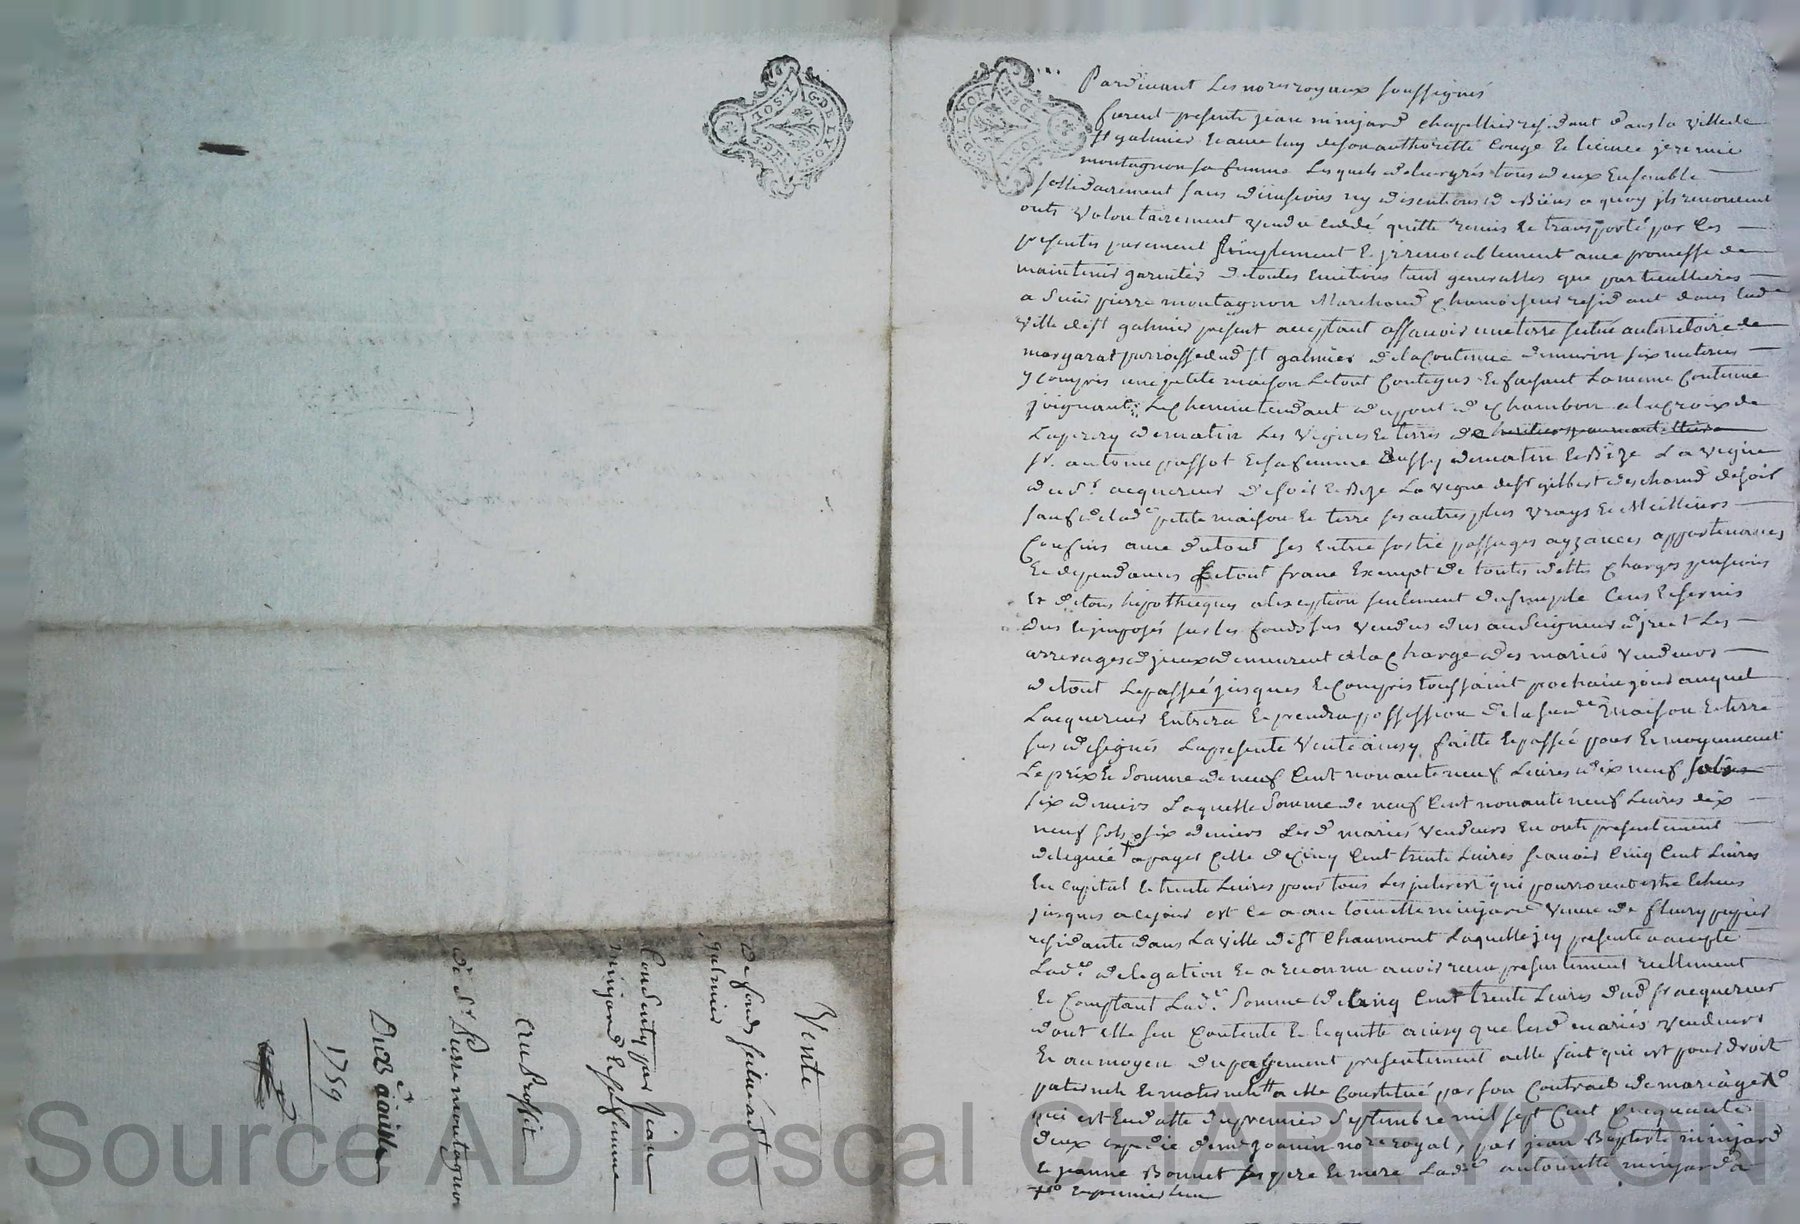 Pardevant Les no.res royaux soussignés
furent presents jean minjard chapellier residant dans la ville de
st galmier Et avec luy de son authorité Congé Et licence jeremie
montagnon sa femme Lesquels de leurs grés tous deux Ensemble
sollidairement sans divisions ny discutions de Biens a quoy ils renoncent
onts volontairement vendu ceddé quitté remis Et transporté par Les
presentes purement simplement Et jrrevocablement avec promesse de
maintenir garantir de toutes Evictions tant generalles que particullieres
a Sieur pierre montagnon Marchand chamoiseur residant dans lad.e
ville de st galmier present acceptant assavoir une terre scitué au territoire de
margarat parroisse dud st galmier de la Contenue d'environ six meterées
y compris une petite maison Le tout Contigus Et faisant La meme Contenue
joignant Le Chemin tendant du pont de Chambon a la Croix de
de matin Les vignes Et terres de
sr. antoine passot Et sa femme aussy de matin Et Bize La vigne
dud sr acquereur de soir Et Bize La vigne de sr gilbert deschand de soir
sauf de lad.e petite maison Et terre ses autres plus vrays Et Meilliurs
Confins avec du tout ses Entrée sortie passages ayzances appartenances
Et dependances Le tout franc Exempt de toutes dettes charges pensions
Et de tous hipotheques a l'exeption seulement du simple Cens Et servis
dus Et jmposés sur les fonds sus vendus dus au Seigneur direct Les
arrerages d'jceux demeurent a la Charge des mariés vendeurs
de tout Le passé jusques Et Compris toussaint prochain jour auquel
Lacquereur Entrera Et prendra possession de la susd.e maison Et terre
sus designés La presente vente ainsy faitte Et passée pour Et moyennant
Le prix Et Somme de neuf Cent nonante neuf Livres dix neuf sols
six deniers Laquelle Somme de neuf Cent nonante neuf Livres dix
neuf sols six deniers Lesd mariés vendeurs En onts presentement
delegué a payer Celle de Cinq Cent trente Livres scavoir Cinq Cent Livres
En Capital Et trente Livres pour tous Les jnterest qui pourroient estre Echeus
jusques a Ce jour est Ce a antoinette minjard veuve de fleury
residante dans La ville de st Chaumont Laquelle jcy presente a accepté
Lad.e delegation Et a reconnu avoir receu presentement reellement
Et Comptant Lad.e Somme de Cinq Cent trente Livres dud sr acquereur
dont elle sen Contente Et Le quitte ainsy que lesd mariés vendeurs
Et au moyen du payement presentement a elle fait qui est pour droit
paternels Et maternels a elle Constitué par son Contract de mariage
qui est En datte du premier Septembre mil sept Cent Cinquante
deux expedié de me joannin no.re royal, par jean Baptiste minjard
Et jeanne Bonnet ses pere Et mere Lad.e antoinette minjard a
Vente
de fonds scitué a st
galmier
Consenty par jean
minjard Et sa femme
au Proffit
de Sr Pierre montagnon
Du
1759
Source AD Pascal CHAPEYRON